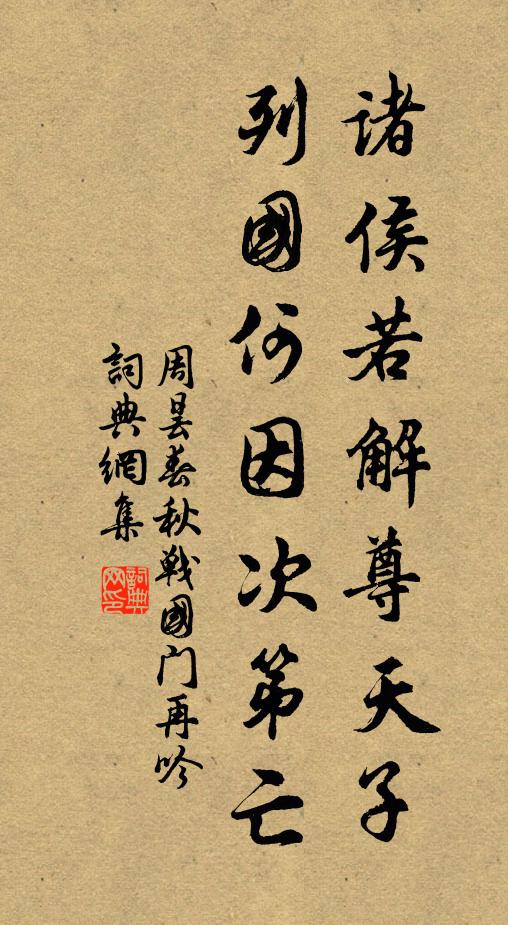 諸侯若解尊天子
列國何因次第亡
周昙春秋戰國门再吟
詞典網集
詞典网印